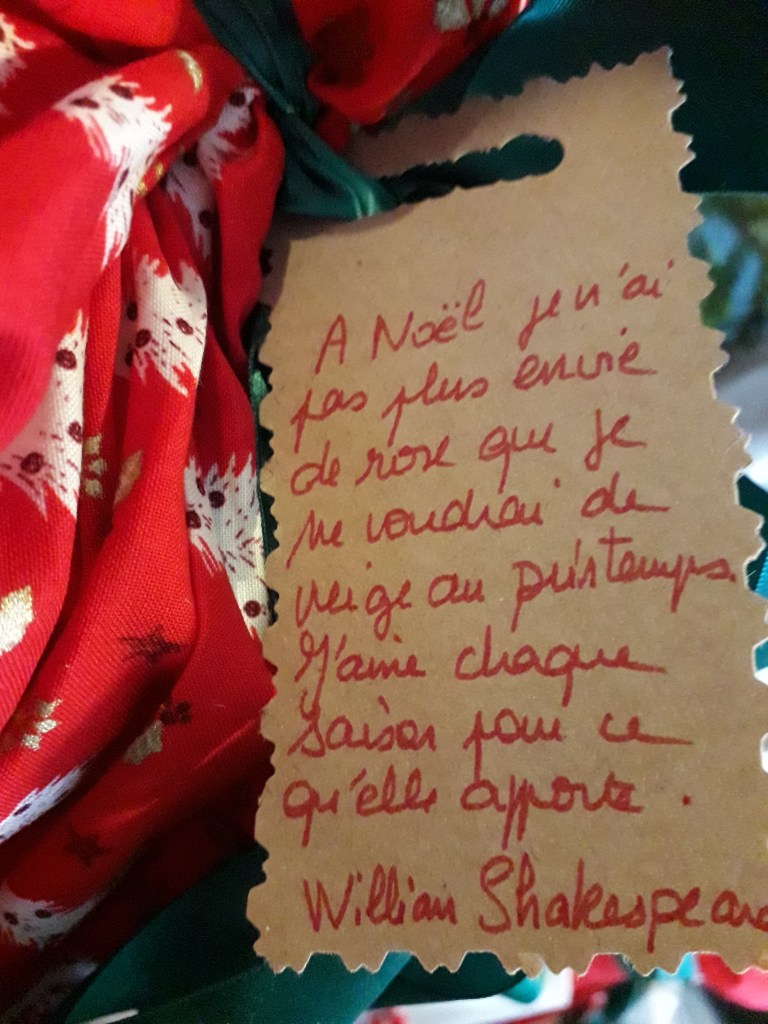 A Noël je n'ai
pas plus envie
de rose que je
ne voudrai de
neige au printemps.
J'aime chaque
saison pour ce
qu'elle apporte.
William Shakespeare